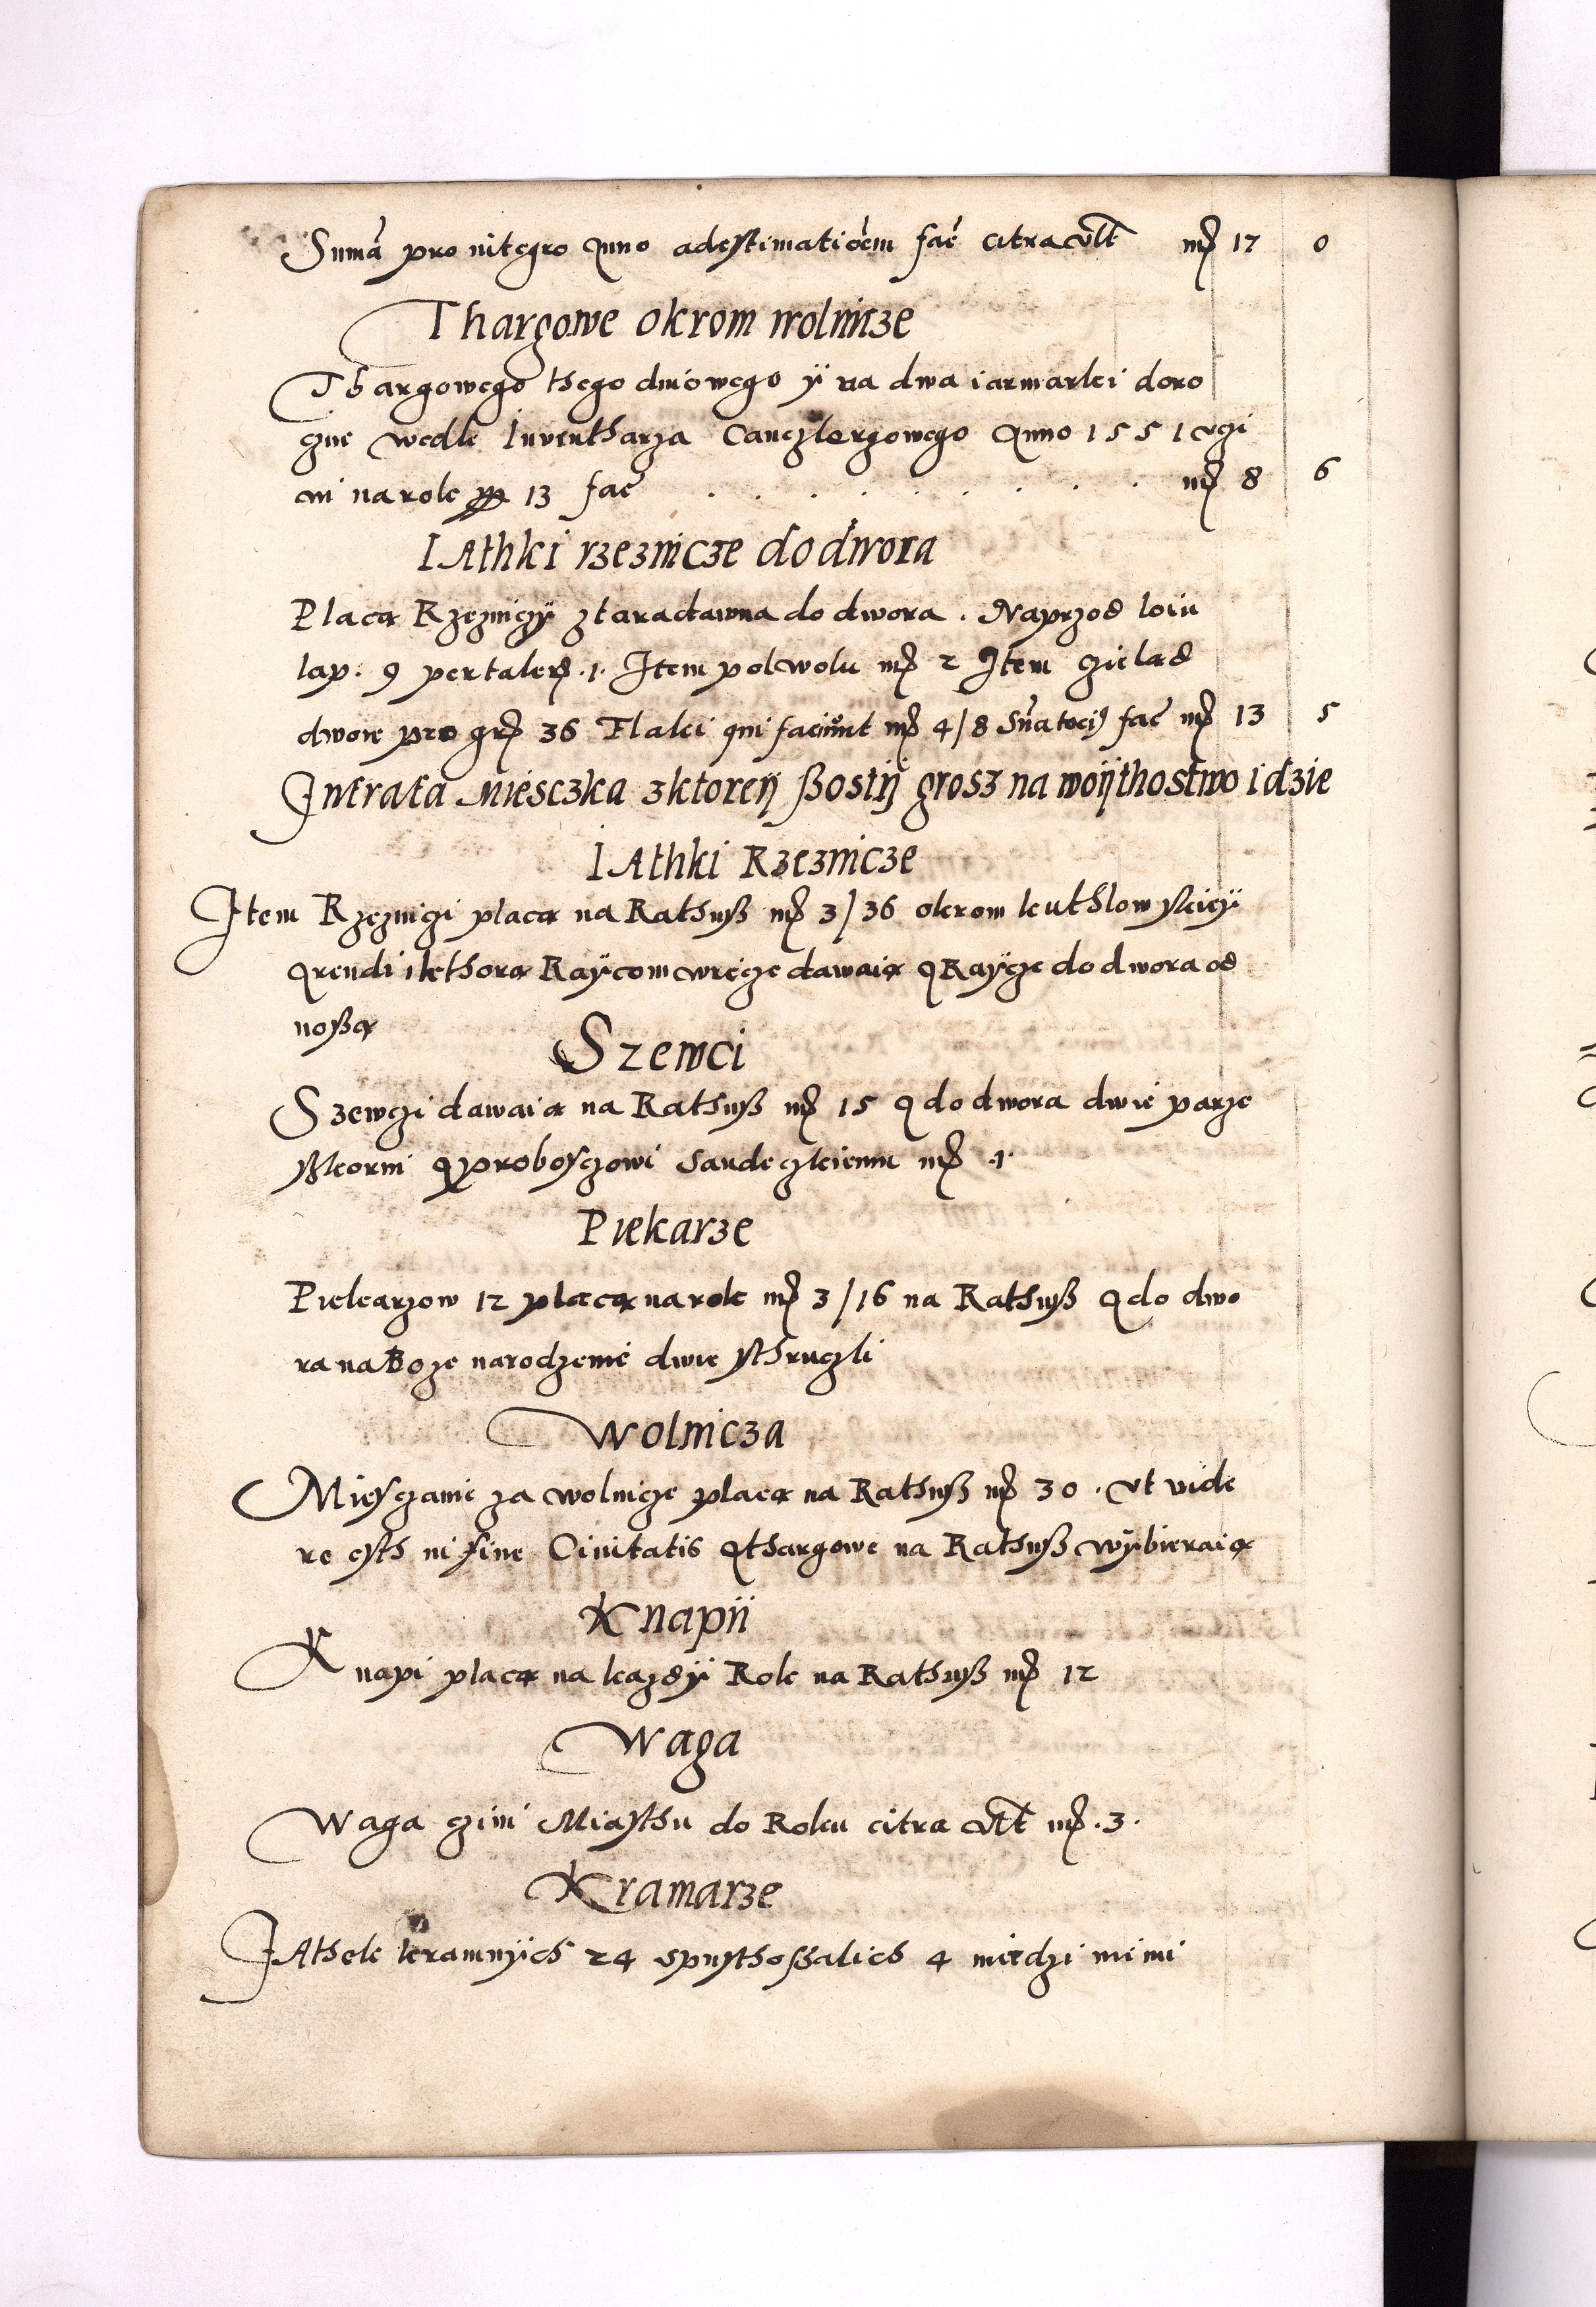 Suma pro integro Anno ad estimationem fac citra vlt mr 17 0
Thargowe okrom wolnicze
Thargowego thego dniowego ÿ na dwa iarmarki doro
czne wedle Inventharza Canczlerzowego Anno 1551 vczi
ni na rok pp 13 fac . . . . . . . . . mr 8 6
IAthki rzeznicze do dwora
Placą Rzezniczÿ ztaradawna do dwora . Naprzod loiu
lap. 9 per taler .1. Item pol wolu mr 2 Item Zielad
dwoie pro gr 36 Flaki qui faciunt mr 4/8 Suma toci9 fac mr 13 5
Intrata Miesczka z ktorerÿ ßostÿ grosz na woÿthostwo idzie
IAthki Rzeznicze
Item Rzeznigi placą na Rathuß mr 3/36 okrom kuthlowskieÿ
Arendi kthorą Raÿcom wręcze dawaią A Raÿcze do dwora od
noßą
Szewci
Szewczi dawaią na Rathuß mr 15 A do dwora dwie parze
ßkorni A proboszczowi Sandeczkiemu mr .1.
Piekarze
Piekarzow 12 placą na rok mr 3/16 na Rathuß A do dwo
ra na Boze narodzenie dwie sthruczli
Wolnicza
Miesczanie za wolnicze placą na Rathuß mr 30 . vt vide
re esth in fine Civitatis A thargowe na Rathuß wÿbieraią
Knapii
Knapi placą na kazdÿ Rok na Rathuß mr 12
Waga
Waga czini Miasthu do Roku citra vlt mr .3.
Kramarze
IAthek kramnÿch 24 spusthoszalich 4 miedzi nimi